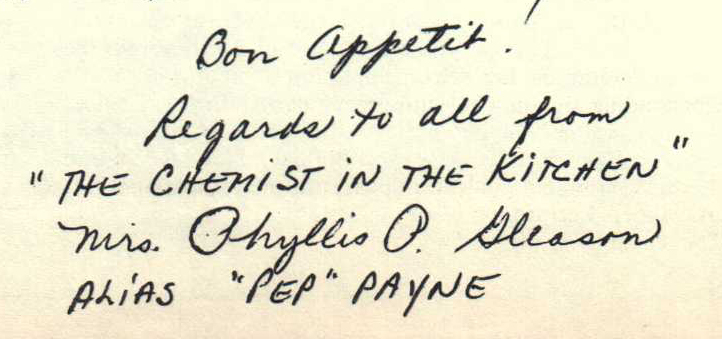 Bon Appetit!
Regards to all from
"THE CHEMIST IN THE KITCHEN"
Mrs. Phyllis P. Gleason
ALIAS "PEP" PAYNE